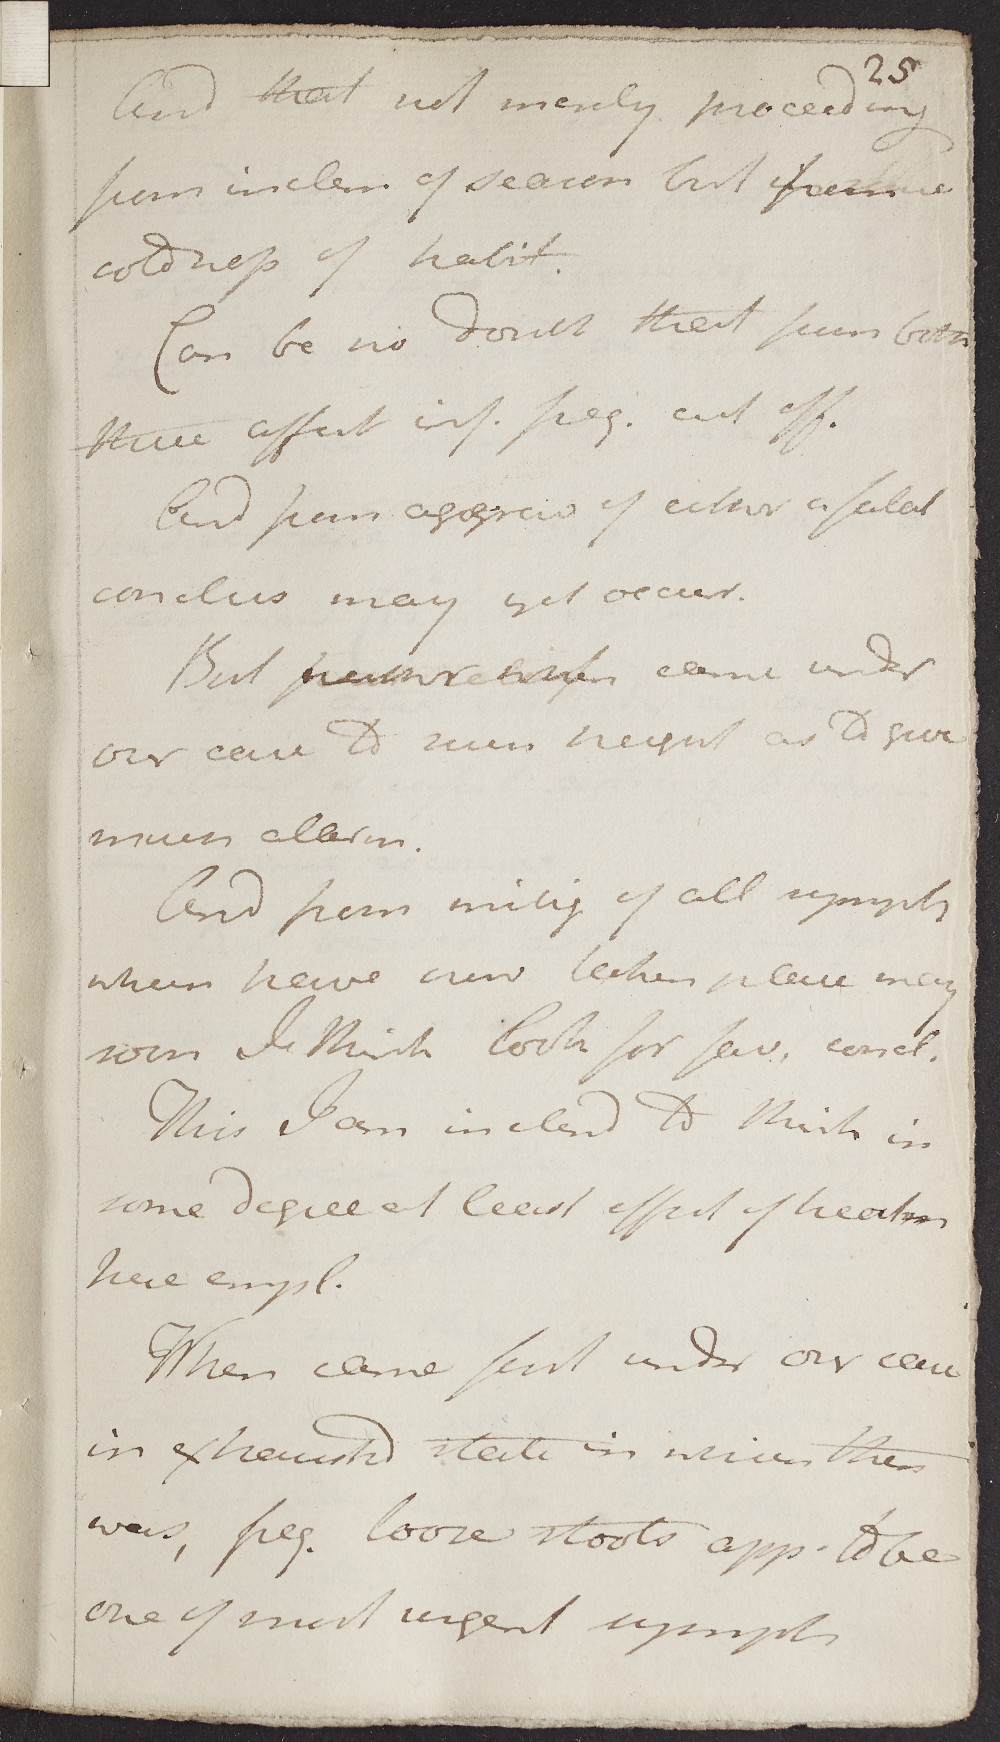 25
And that not merely proceeding
from inclem of season but from
coldness of habit.
Can be no doubt that from both
these affect inf. freq. cut off.
And from aggrav of either a fatal
conclus may yet occur.
But neither came under
our care to such height as to give
much allarm.
And from mitig of all sympth
which have now taken place may
soon I think look for fav. concl.
This I am inclend to think in
some degree at least effect of
here empl.
When came first under our care
in exhausted state in which then
was, freq. loose stools app. to be
one of most urgent sympth